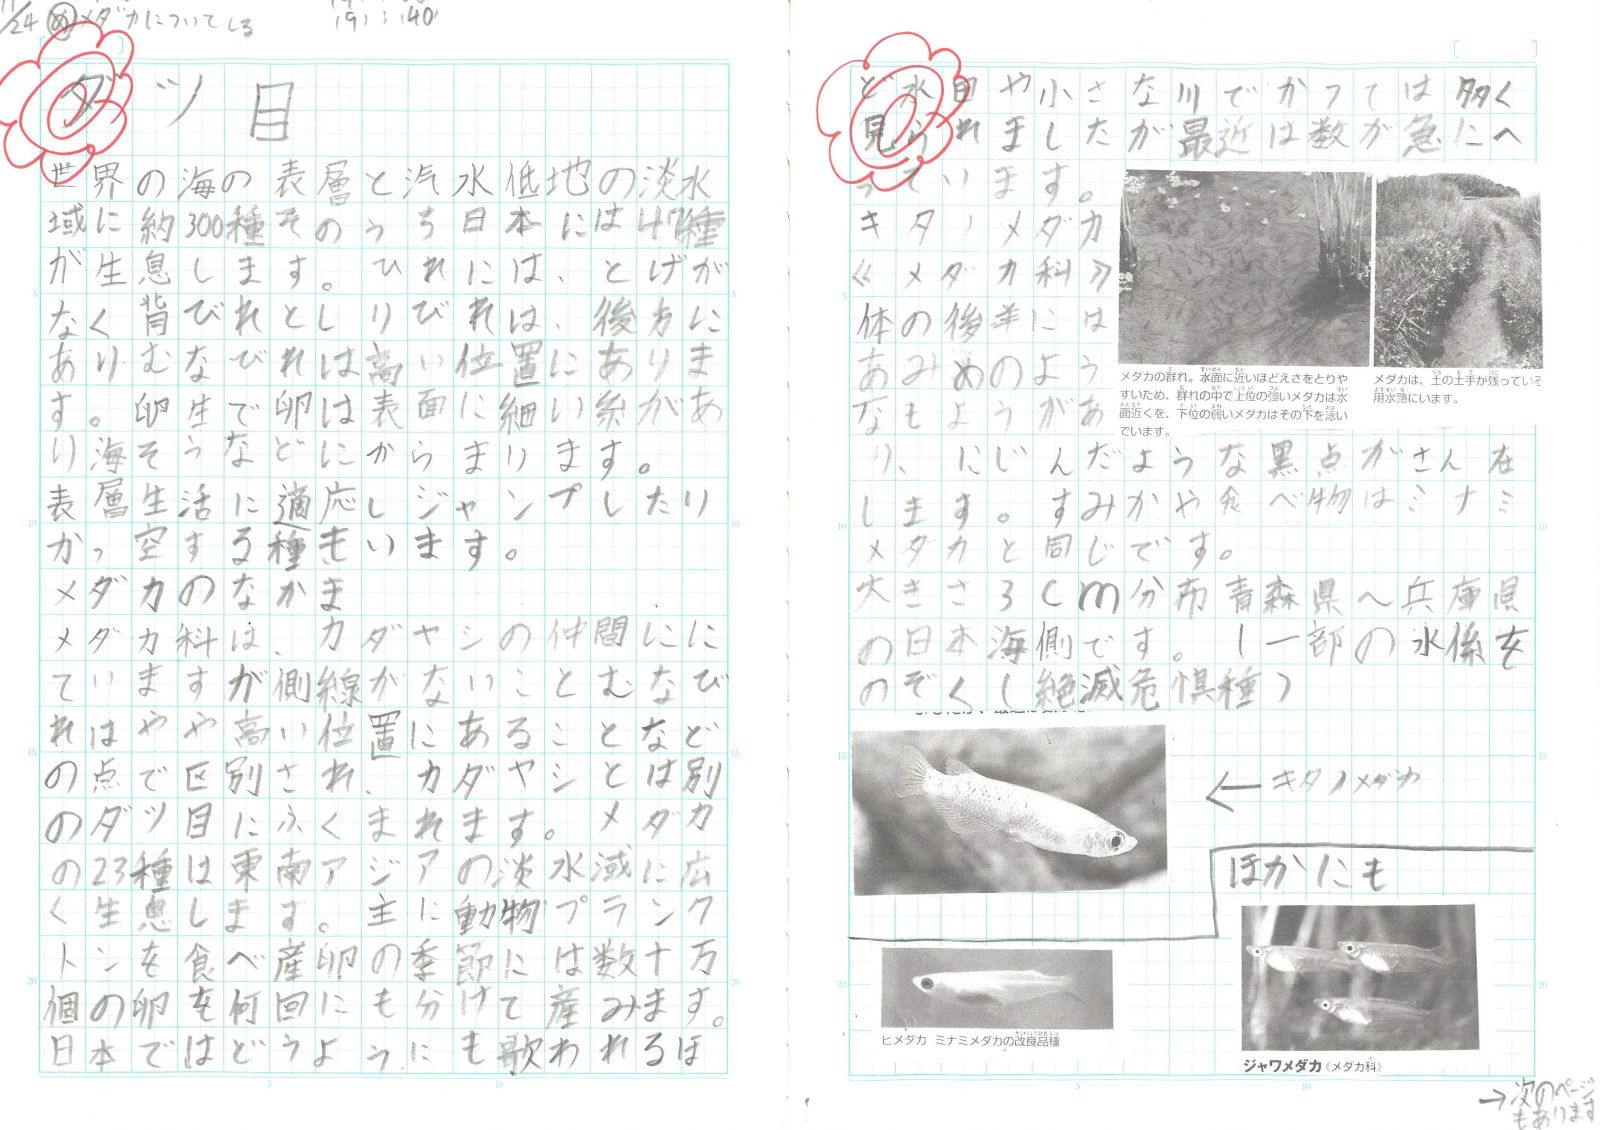 11/24 めメダカについてしる
191:140
ダツ目
世界の海の表層と汽水低地の淡水
域に約300種そのうち日本には47種
が生息します。ひれには、とげが
なく背びれとしりびれは、後方に
ありむなびれは高い位置にありま
す。卵生で卵は表面に細い糸があ
り海そうなどにからまります。
表層生活に適応しジャンプしたり
かっ空する種もいます。
メダカのなかま
メダカ科は、カダヤシの仲間にに
ていますが側線がないことむなび
れはやや高い位置にあることなど
の点で区別され、カダヤシとは別
のダツ目にふくまれます。メダカ
の23種は東南アジアの淡水域に広
く生息します。主に動物プランク
トンを食べ産卵の季節には数十万
個の卵を何回にも分けて産みます。
日本ではどうようにも歌われるほ
ど水田や小さな川でかつては多く
見られましたが最近は数が急にへ
っています。
キタノメダカ
《メダカ科》
体の後半には
あみめのよう
なもようがあ
り、にじんだような黒点がさん在
します。すみかや食べ物はミナミ
メダカと同じです。
大きさ3cm分布青森県へ兵庫県
の日本海側です。(一部の水係を
のぞく(絶滅危惧種)
メダカの群れ。水面に近いほどえさをとりや
すいため、群れの中で上位の強いメダカは水
面近くを、下位の弱いメダカはその下を泳い
でいます。
メダカは、土の土手が残っている
用水路にいます。
←キタノメダカ
ほかにも
ヒメダカ ミナミメダカの改良品種
ジャワメダカ《メダカ科》
→次のページ
もあります